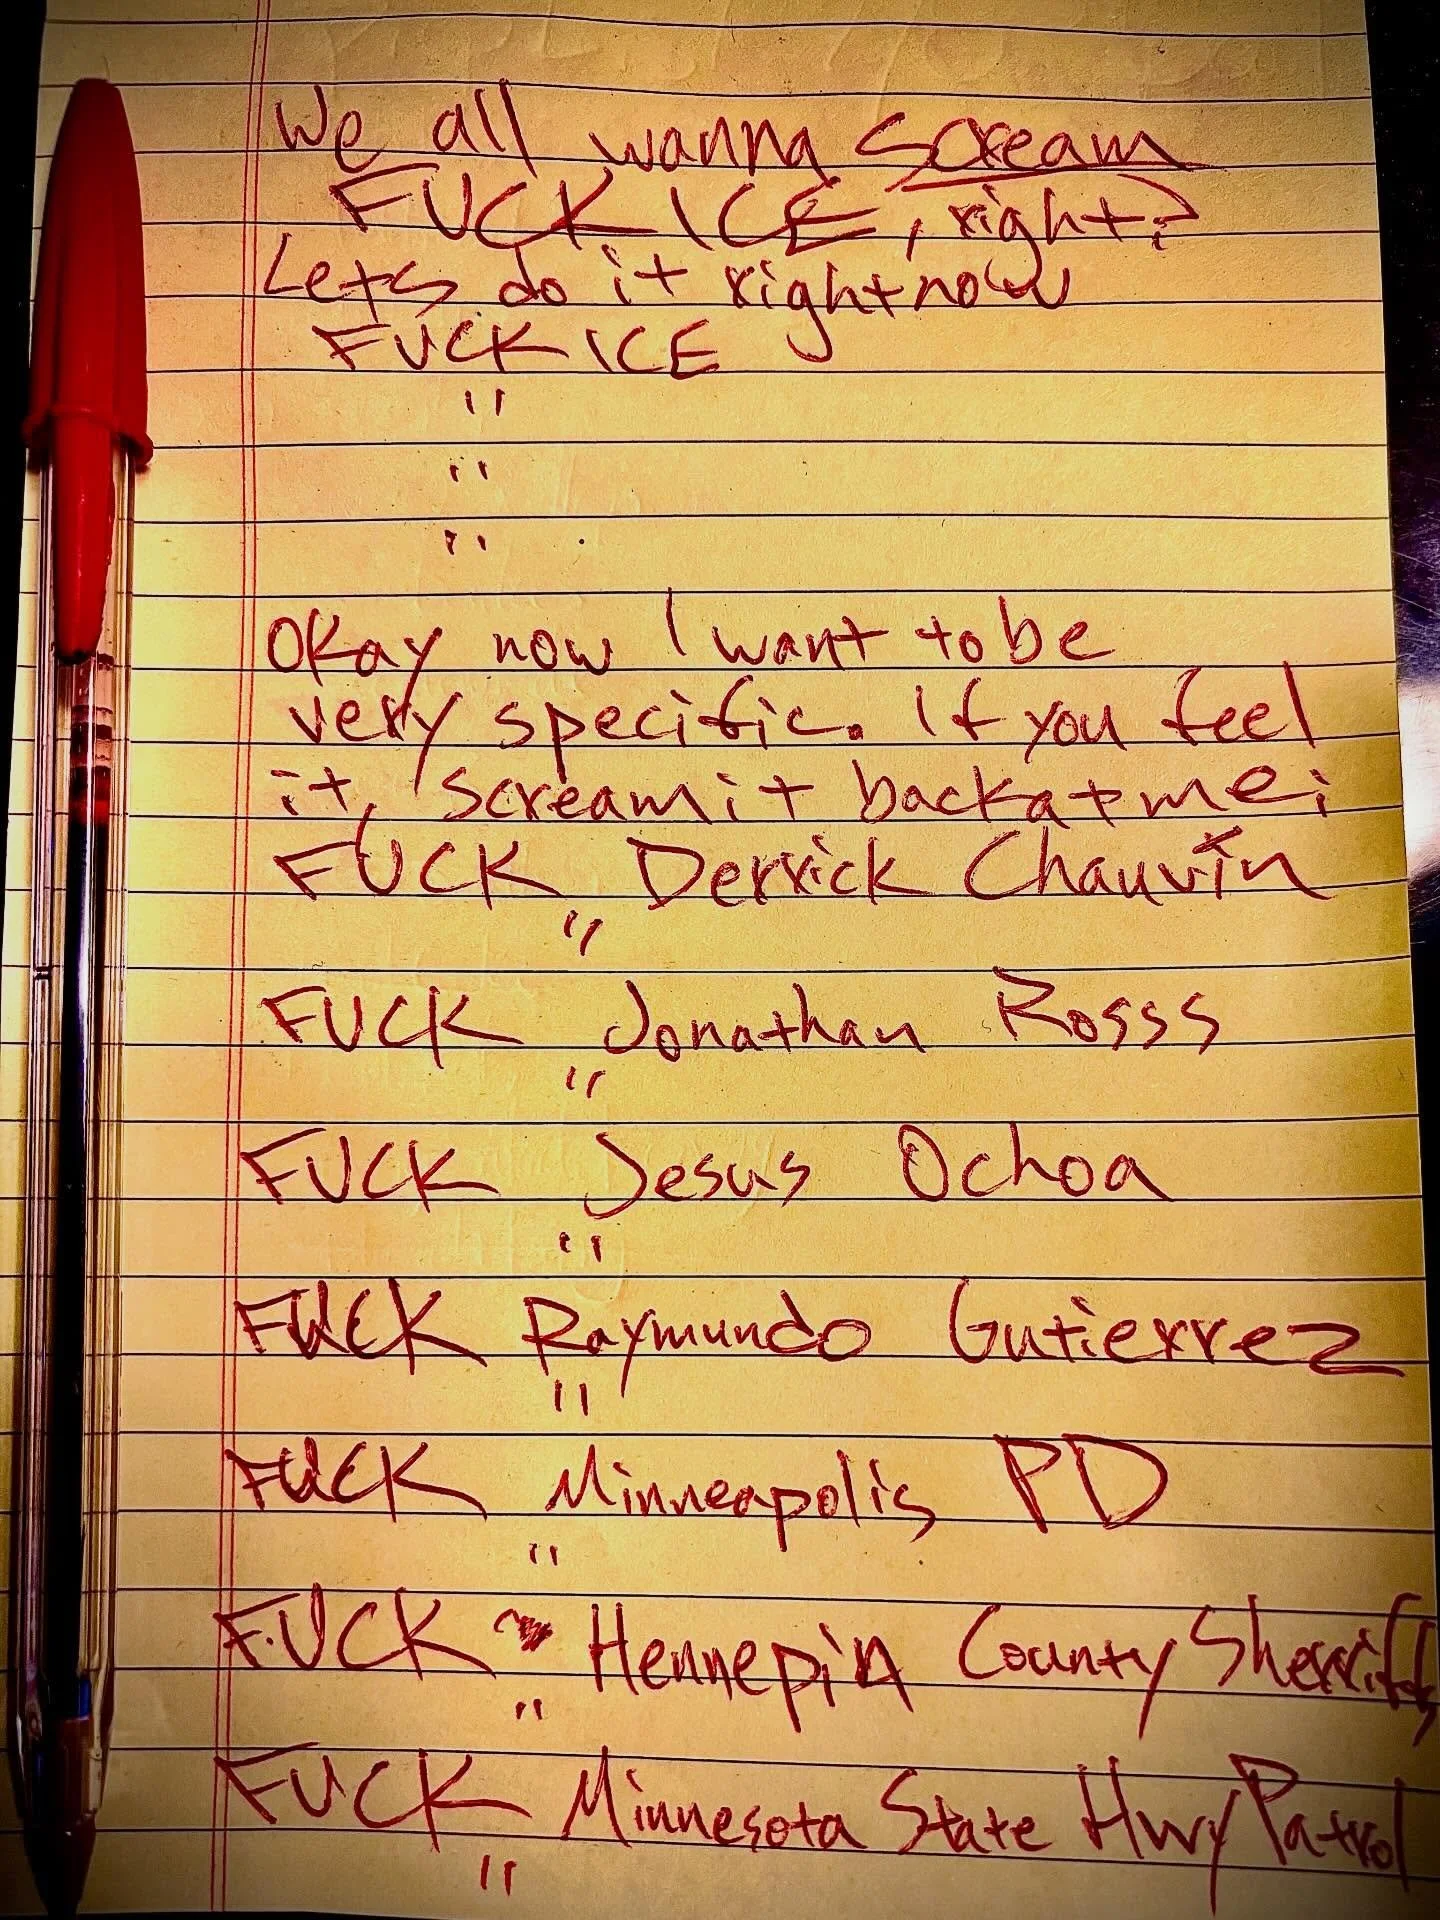 We all wanna scream
FUCK ICE, right?
Lets do it right now
FUCK ICE
"
"
"
Okay now I want to be
very specific. If you feel
it, scream it back at me:
FUCK Derrick Chauvin
"
FUCK Jonathan Rosss
"
FUCK Jesus Ochoa
"
FUCK Raymundo Gutierrez
"
FUCK Minneapolis PD
"
FUCK Hennepin County Sherriffs
"
FUCK Minnesota State Hwy Patrol
"